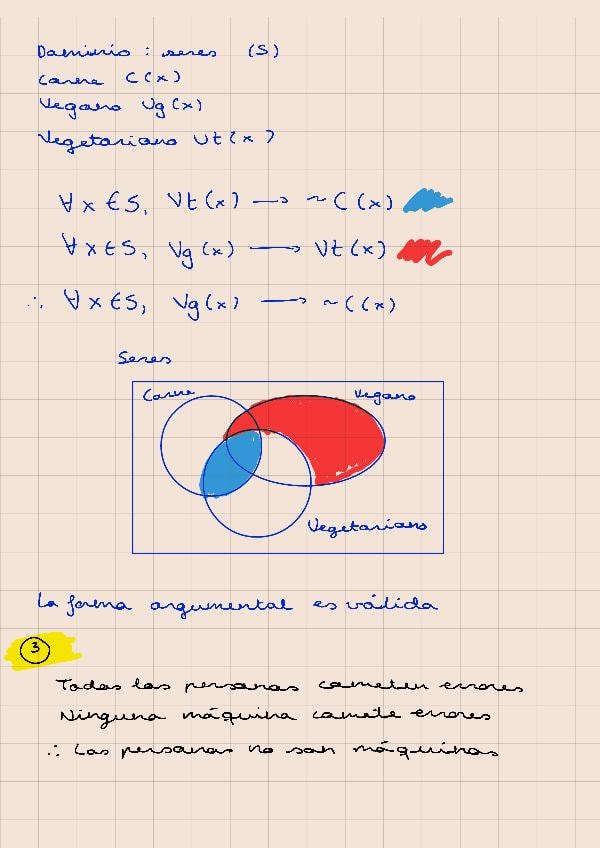 Dominio : seres (S)
Carne C(x)
Vegano Vg(x)
Vegetariano Vt(x)
∀x∈S, Vt(x) → ~C(x)
∀x∈S, Vg(x) → Vt(x)
∴ ∀x∈S, Vg(x) → ~C(x)
Seres
Carne Vegano
Vegetariano
La forma argumental es válida
3
Todas las personas cometen errores
Ninguna máquina comete errores
∴ Las personas no son máquinas